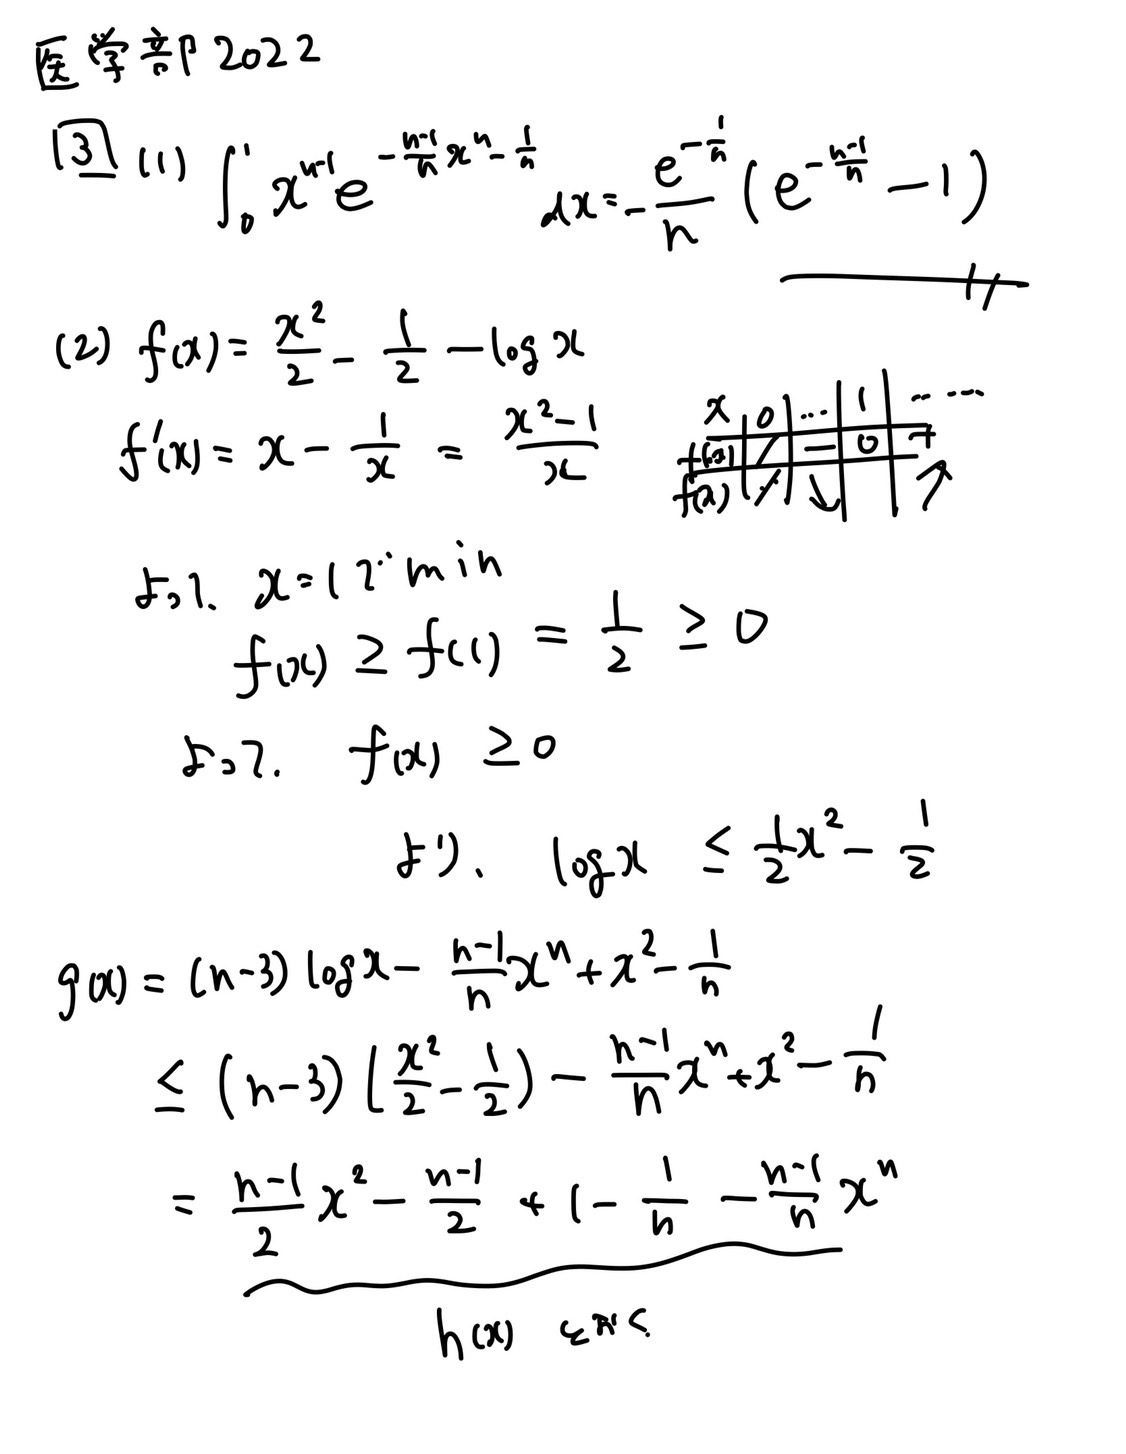 医学部2022
3 (1) ∫₀¹ xⁿ⁻¹ e^{-\frac{n-1}{n}xⁿ-\frac{1}{n}} dx = -\frac{e^{-\frac{1}{n}}}{n} (e^{-\frac{n-1}{n}} - 1)
(2) f(x) = \frac{x²}{2} - \frac{1}{2} - log x
f'(x) = x - \frac{1}{x} = \frac{x²-1}{x}
x 0 … 1 … …
f'(x) / - 0 +
f(x) / ↘ ↗
よって. x=1で min
f(x) ≥ f(1) = \frac{1}{2} ≥ 0
よって. f(x) ≥ 0
より、 log x ≤ \frac{1}{2}x² - \frac{1}{2}
g(x) = (n-3) log x - \frac{n-1}{n}xⁿ + x² - \frac{1}{n}
≤ (n-3) (\frac{x²}{2} - \frac{1}{2}) - \frac{n-1}{n}xⁿ + x² - \frac{1}{n}
= \frac{n-1}{2}x² - \frac{n-1}{2} + 1 - \frac{1}{n} - \frac{n-1}{n}xⁿ
h(x) とおく.